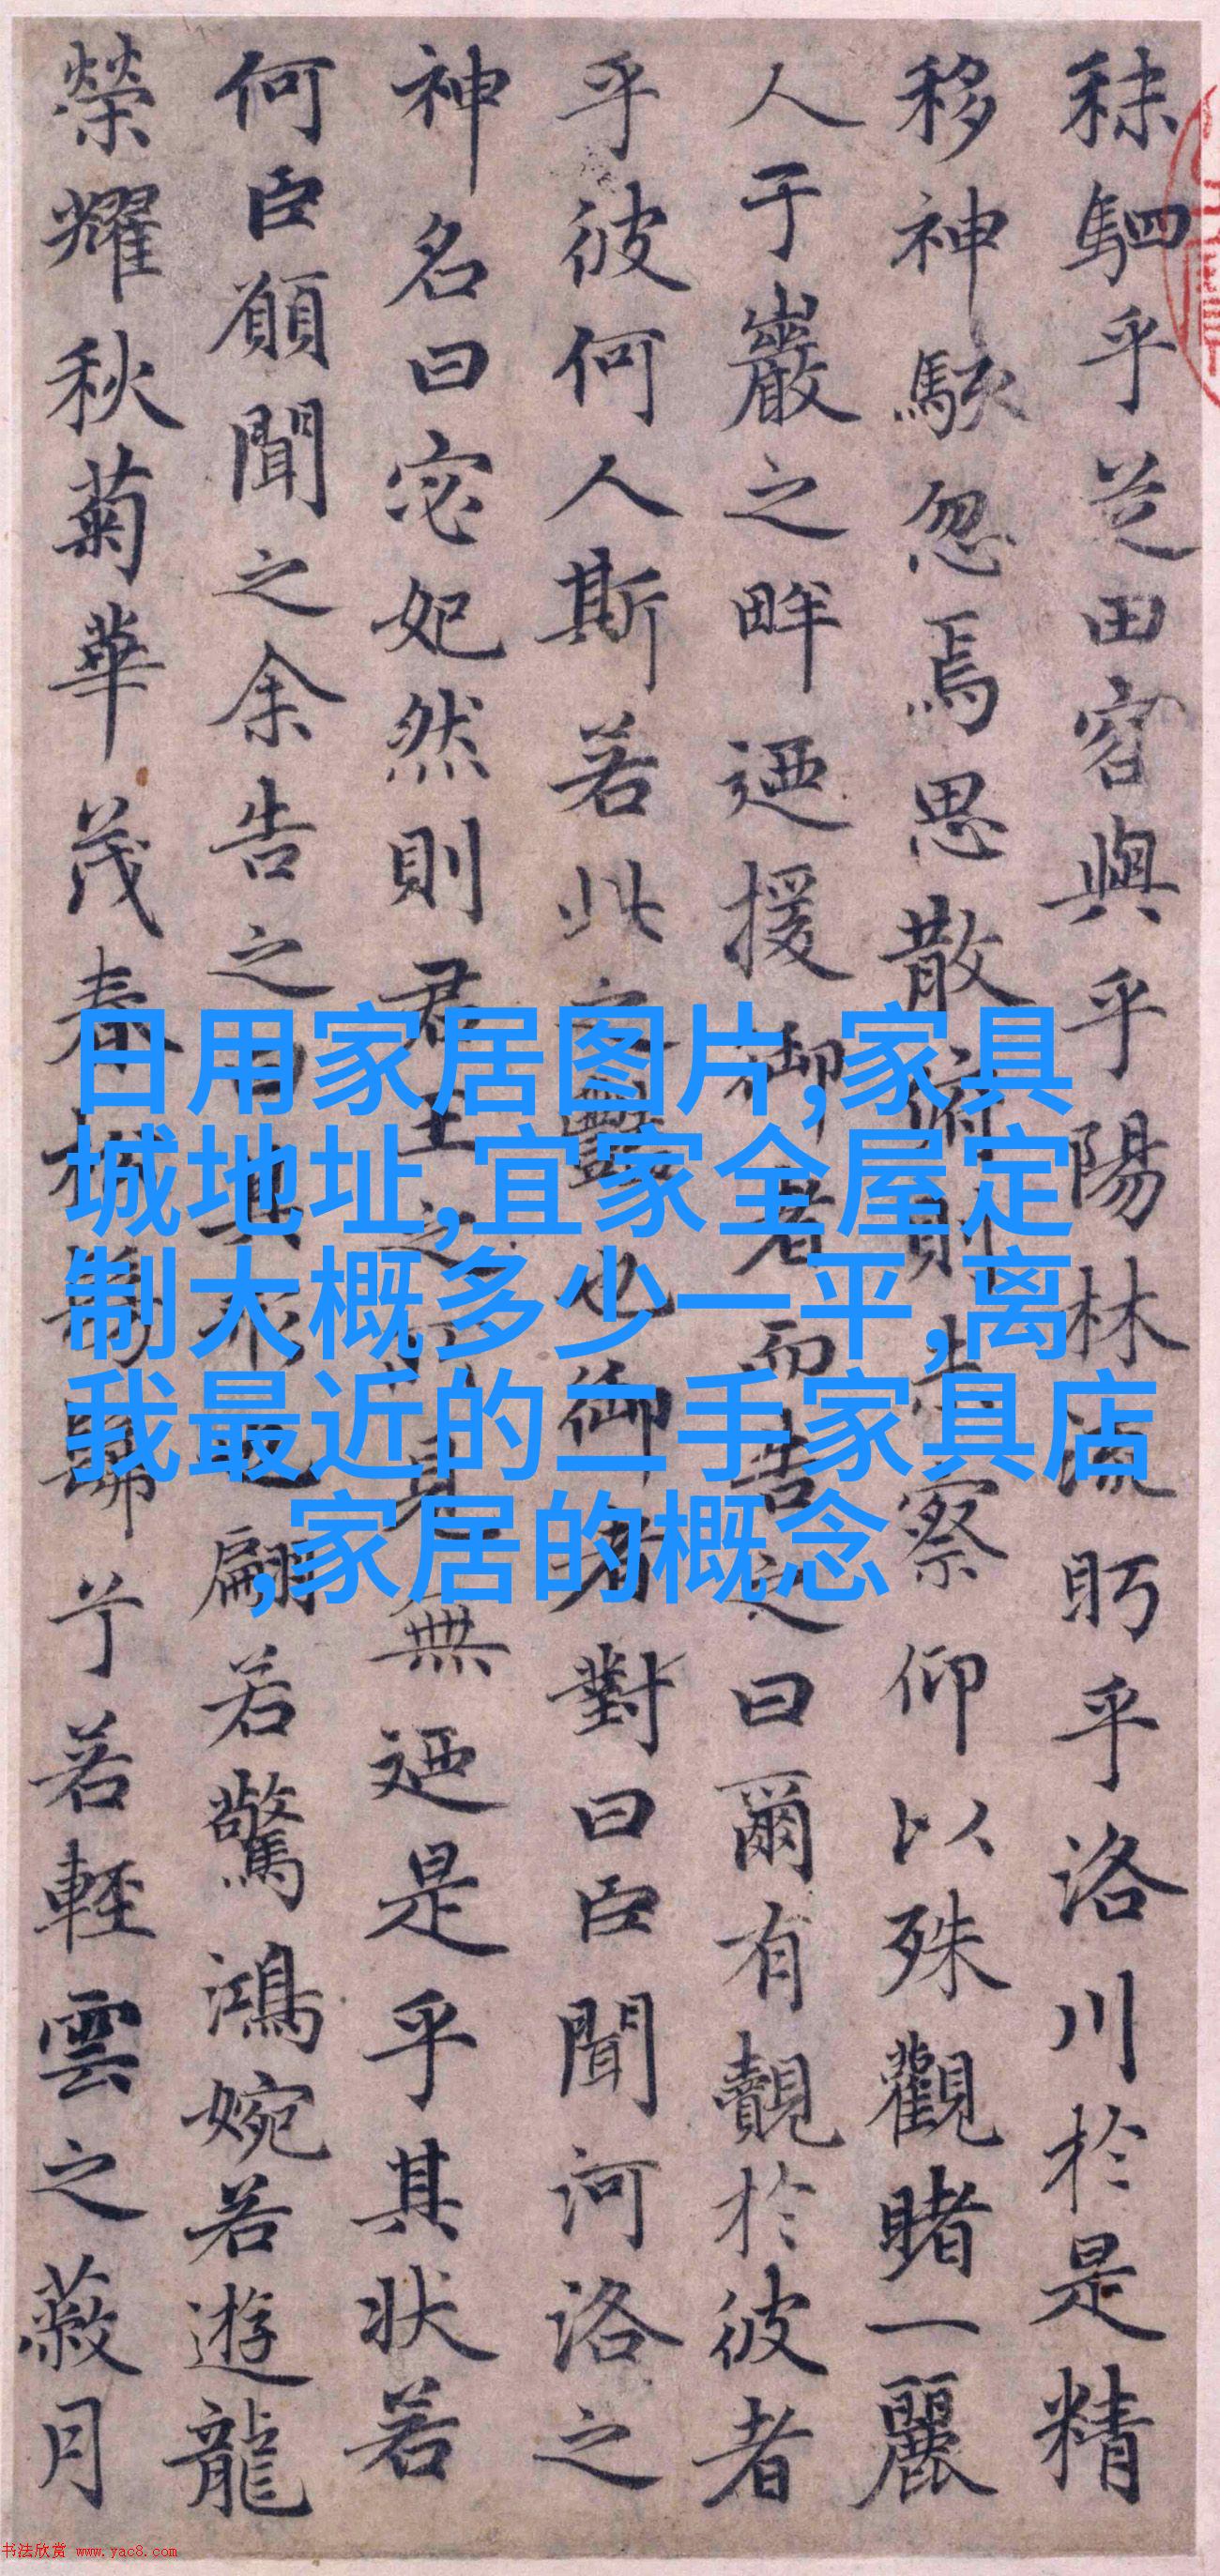 秣駟乎芝田容與乎陽林流眄乎洛川於是精
移神駭忽焉思散俯則未察仰以殊觀睹一麗
人于巖之畔迺援御者而告之曰爾有覿於彼者
乎彼何人斯若此之豔也御者對曰臣聞河洛之
神名曰宓妃然則君王之所見無迺是乎其狀若
何臣願聞之余告之曰其形也翩若驚鴻婉若遊龍
榮耀秋菊華茂春松髣髴兮若輕雲之蔽月
日用家居图片,家具
城地址,宜家全屋定
制大概多少一平,离
我最近的二手家具店
,家居的概念
书法欣赏 www.yac8.com